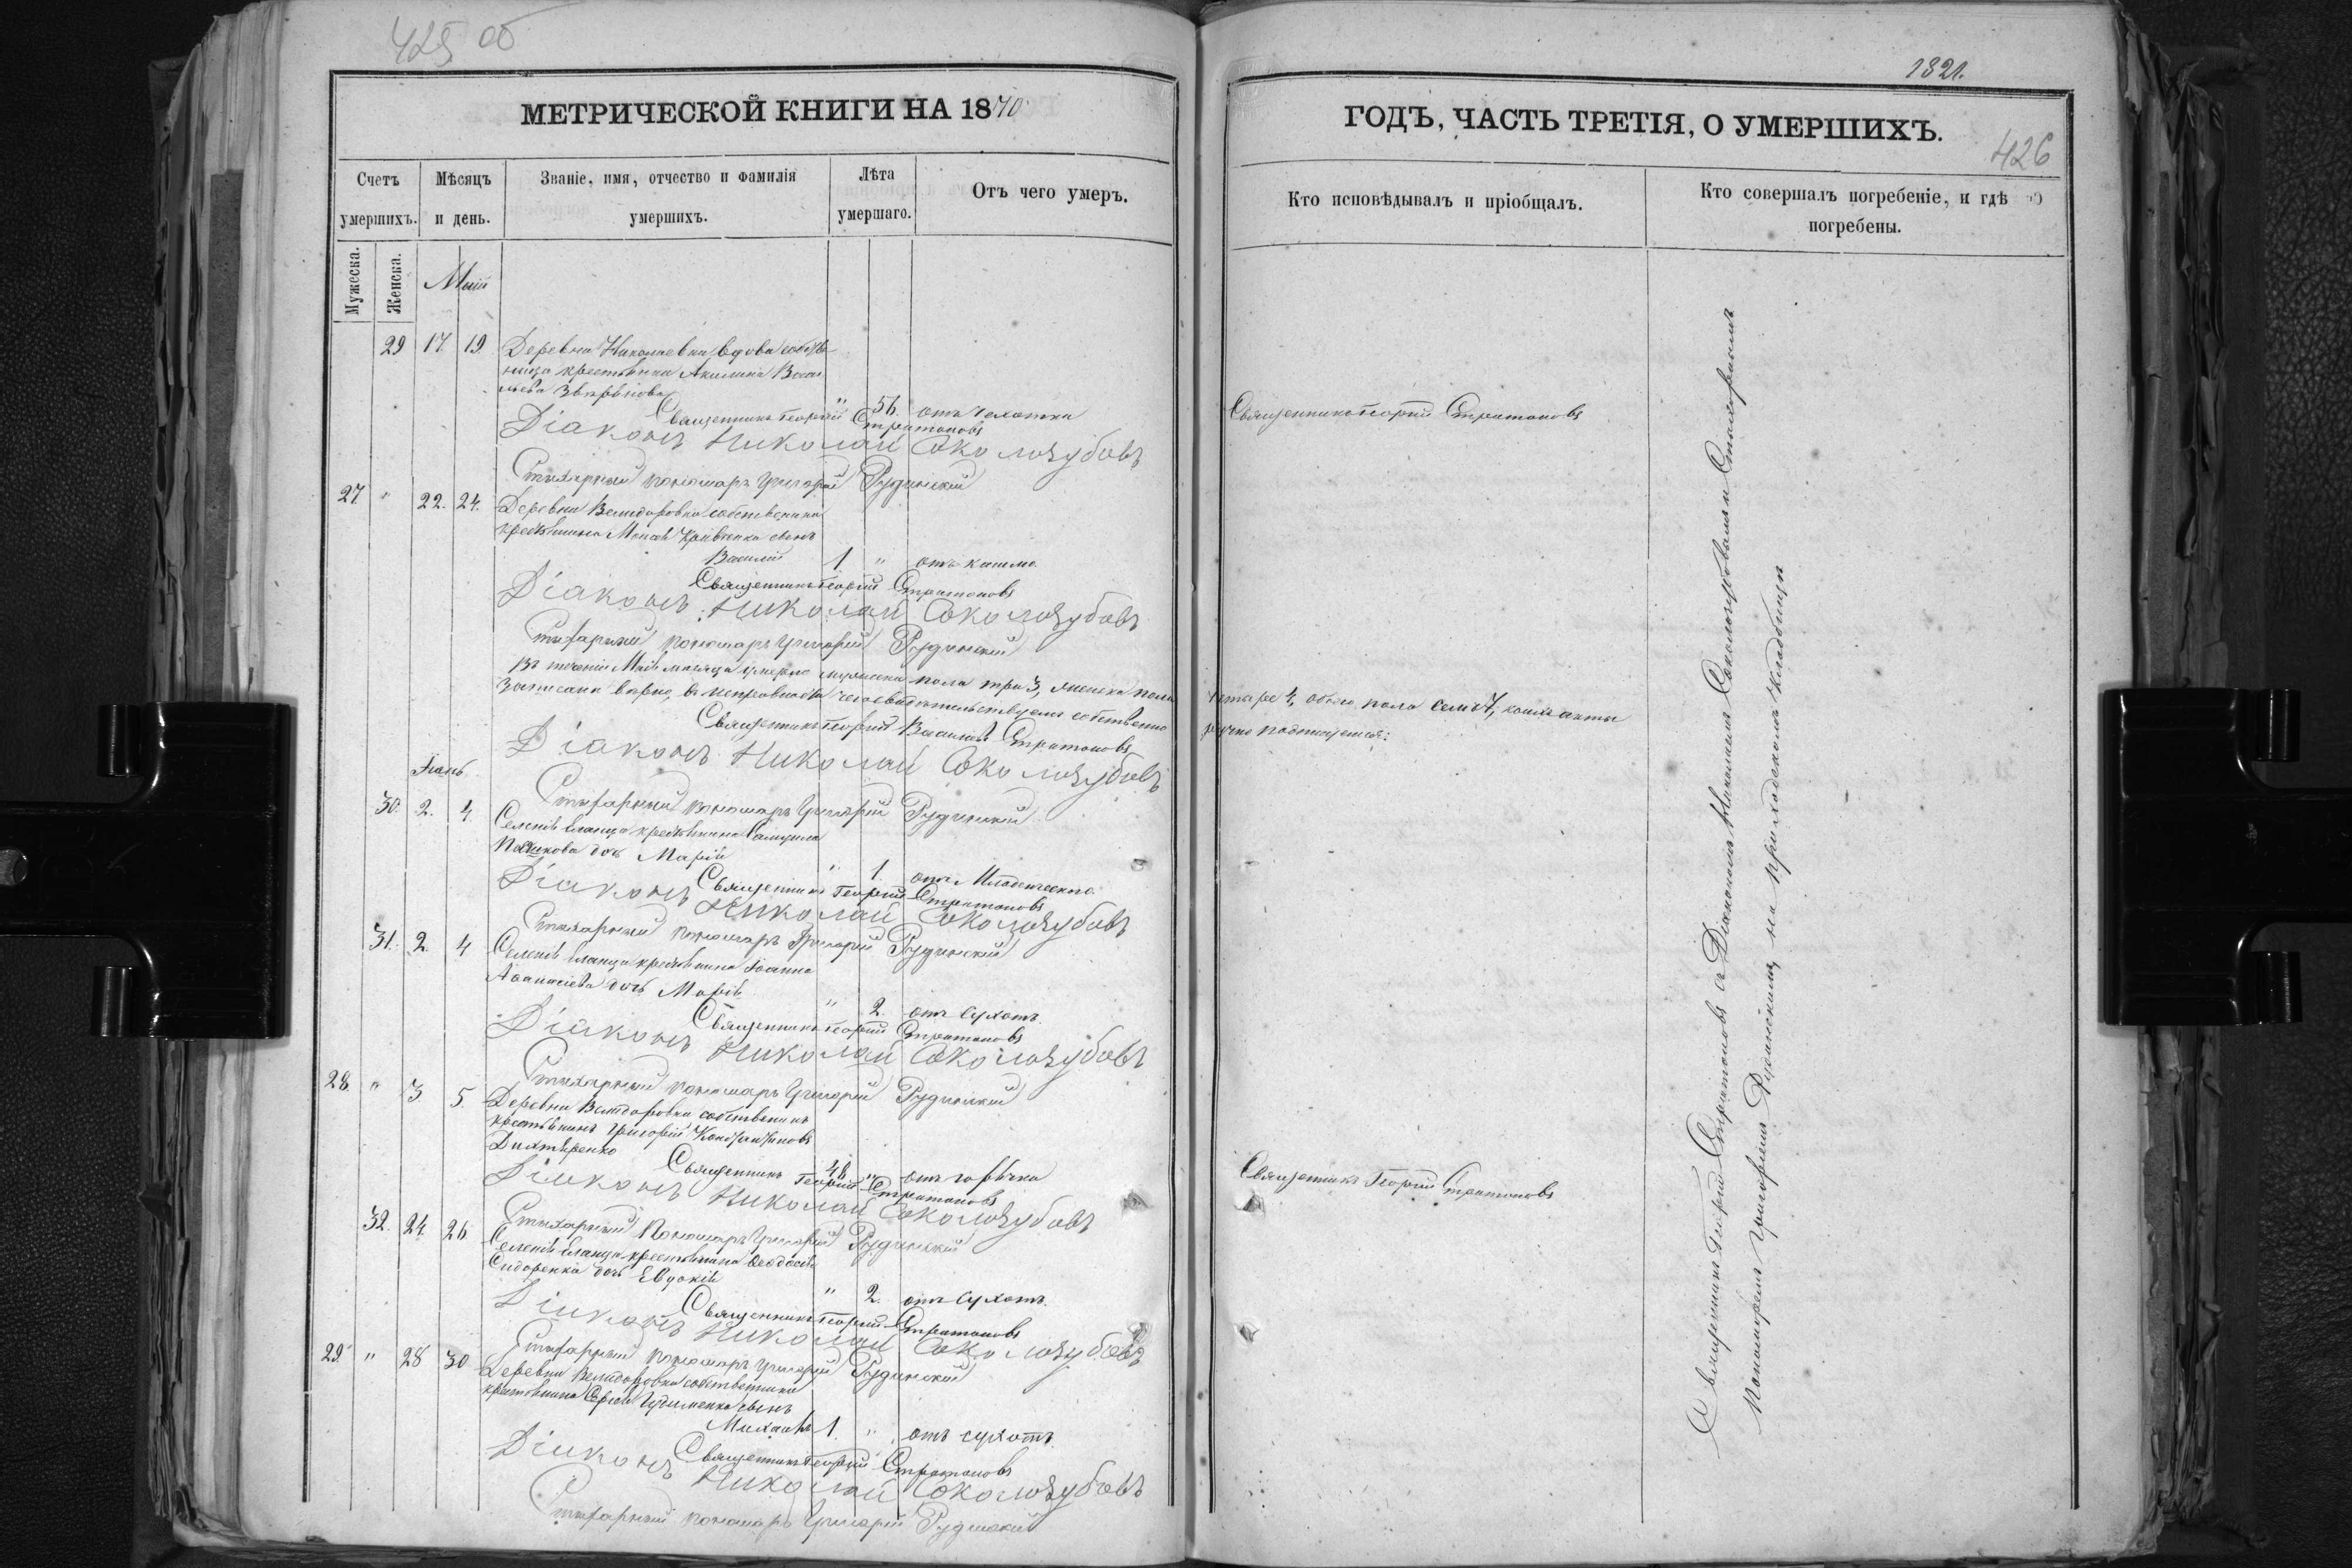 425 об
МЕТРИЧЕСКОЙ КНИГИ НА 1870
Счетъ умершихъ.
Мѣсяцъ и день.
Званіе, имя, отчество и фамилія умершихъ.
Лѣта умершаго.
Отъ чего умеръ.
Мужеска.
Женска.
Май
29 17. 19. Деревни Николаевки вдова собств-
ница крестьянка Акилина Васи-
льева
" 56. отъ чахотки
Священникъ Георгій Стратоновъ
Діаконъ Николай Соколозубовъ
Стихарный пономарь Григорій Рудинскій
27. " 22. 24. Деревни Велидаровки собственника
крестьянина Моисея Кривенка сынъ
Василій 1 " отъ кашля
Священникъ Георгій Стратоновъ
Діаконъ Николай Соколозубовъ
Стихарный пономарь Григорій Рудинскій
Въ теченіи Маія месяца умерло мужеска пола три 3, женска пола
записани верно, въ исправности чего свидетельствуемъ собственно
Священникъ Георгій Василіевъ Стратоновъ
Діаконъ Николай Соколозубовъ
Стихарный пономарь Григорій Рудинскій
Іюнь
30. 2. 4. Селенія Еланца крестьянина Самуила
дочь Марія
" 1. отъ Младенческаго
Священникъ Георгій Стратоновъ
Діаконъ Николай Соколозубовъ
Стихарный пономарь Григорій Рудинскій
31. 2. 4 Селенія Еланца крестьянина Іоанна
Аѳанасіева дочь Марія
" 2. отъ Сухотъ
Священникъ Георгій Стратоновъ
Діаконъ Николай Соколозубовъ
Стихарный пономарь Григорій Рудинскій
28. " 3. 5. Деревни Велидаровки собственникъ
крестьянинъ Григорій Константиновъ
Дихтяренко
48. " отъ горячки
Священникъ Георгій Стратоновъ
Діаконъ Николай Соколозубовъ
Стихарный Пономарь Григорій Рудинскій
32. 24. 26 Селенія Еланца крестьянина Ѳеодосія
Сидоренка дочь Евдокія
" 2. отъ Сухотъ
Священникъ Георгій Стратоновъ
Діаконъ Николай Соколозубовъ
Стихарный пономарь Григорій Рудинскій
29. " 28 30 Деревни Велидаровки собственника
крестьянина Сергія сынъ
Михаилъ 1. " отъ сухотъ
Священникъ Георгій Стратоновъ
Діаконъ Николай Соколозубовъ
Стихарный пономарь Григорій Рудинскій
1321.
ГОДЪ, ЧАСТЬ ТРЕТІЯ, О УМЕРШИХЪ.
426
Кто исповѣдывалъ и пріобщалъ.
Кто совершалъ погребеніе, и гдѣ
погребены.
Священникъ Георгій Стратоновъ
четыре 4, обоего пола семь 7, коихъ акты
ручно подписуемся:
Священникъ Георгій Стратоновъ
Священникъ Георгій Стратоновъ съ Діакономъ Николаемъ Соколозубовымъ и Стихарнымъ
Пономаремъ Григоріемъ Рудинскимъ, на приходскомъ кладбищѣ